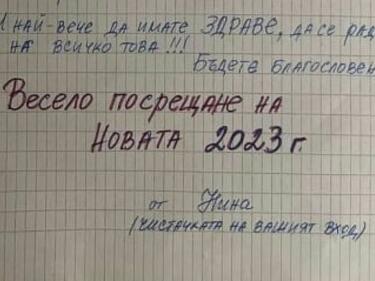 И най-вече да имате ЗДРАВЕ, да се рад
на всичко това !!!
Бъдете благословен
Весело посрещане на
Новата 2023 г.
от Нина
(чистачката на вашият вход)